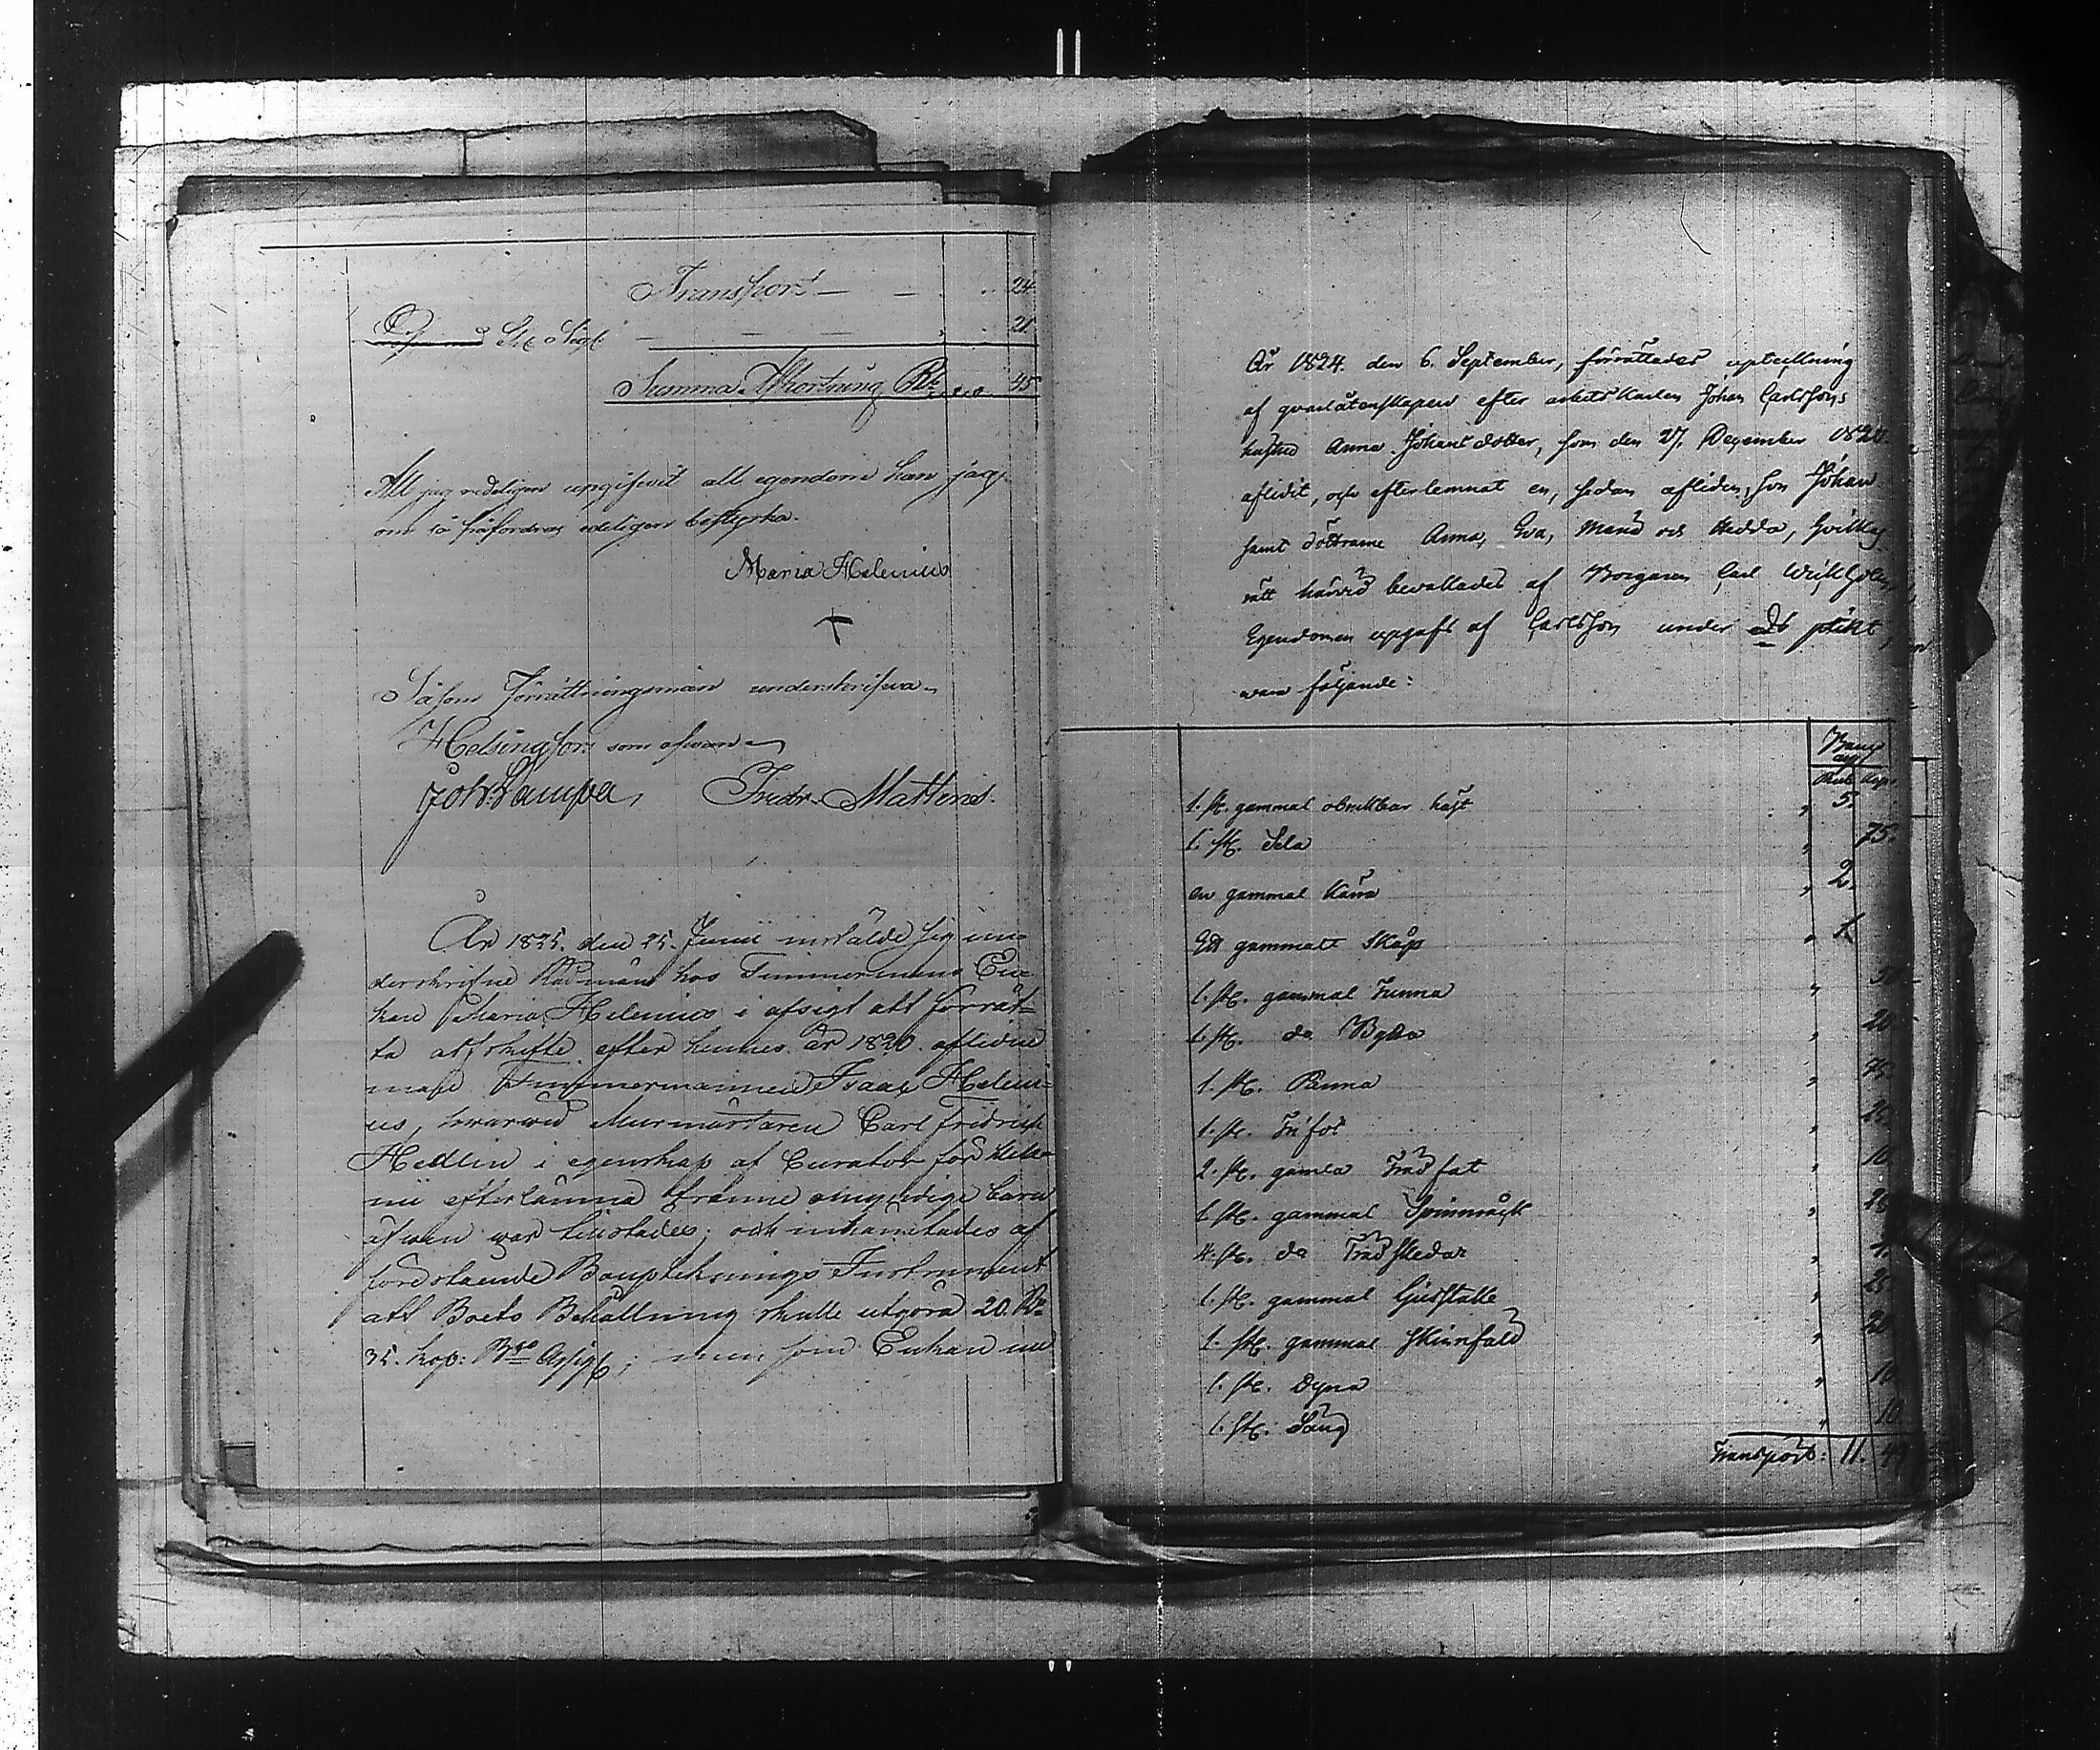 Transport — — 24.
21.
Summa Afkortning Rbl 45
Att jag redeligen upgifwit all egendom kan jag,
om så påfordras edeligen bestyrka.
Maria Helenius
Såsom Förrättningsmän underskrifwa.
Helsingfors som ofwan
Joh: Lampa, Fredr. Mattens.
År 1825. den 25. Junii instälde sig un-
derskrifne Rådmän hos Timmermans En-
kan Maria Helenius i afsigt att förrät-
ta arfskifte efter hennes år 1820. aflidne
man Timmermannen Isaac Helen-
us, hwarwid Murmästaren Carl Fridrich
Hedlin i egenskap af Curator för Hele-
nii efterlämna omyndige barn
äfwen war tillstädes; och inhämtades af
förestående Boupteknings Instrument
att Boets Behållning skulle utgöra 20. Rbl
35. kop: Bco Assign; men som Enkan nu
År 1824. den 6. September, förrättades uptekning
af qvarlåtenskapen efter arbetskarlen Johan Carlssons
hustru Anna Johansdotter, som den 27. December 1820.
aflidit, och efterlemnat en, sedan afliden, son Johan
samt döttrarne Anna, Eva, Maria och Hedda, hvilkas
rätt härvid bevakades af Borgaren Carl
Egendomen uppgafs af Carlsson under eds plikt
vara följande:
Banco
ass
Rub. Kop.
1. st. gammal obrukbar häst " 5.
1. st. Sela " 75.
en gammal Kärra " 2.
Ett gammalt Skåp " 1.
1. st. gammal Tunna " 50
1. st. do Bytta " 20
1. st. Panna " 75
1. st. Trifot " 25.
2. st. gamla Träd fat " 10
1. st. gammal Spinnråck "
4. st. do Träd skedar "
1. st. gammal " 25
1. st. gammal Skinnfäld "
1. st. Dyna " 10
1. st. Säng " 10.
Transport: 11.